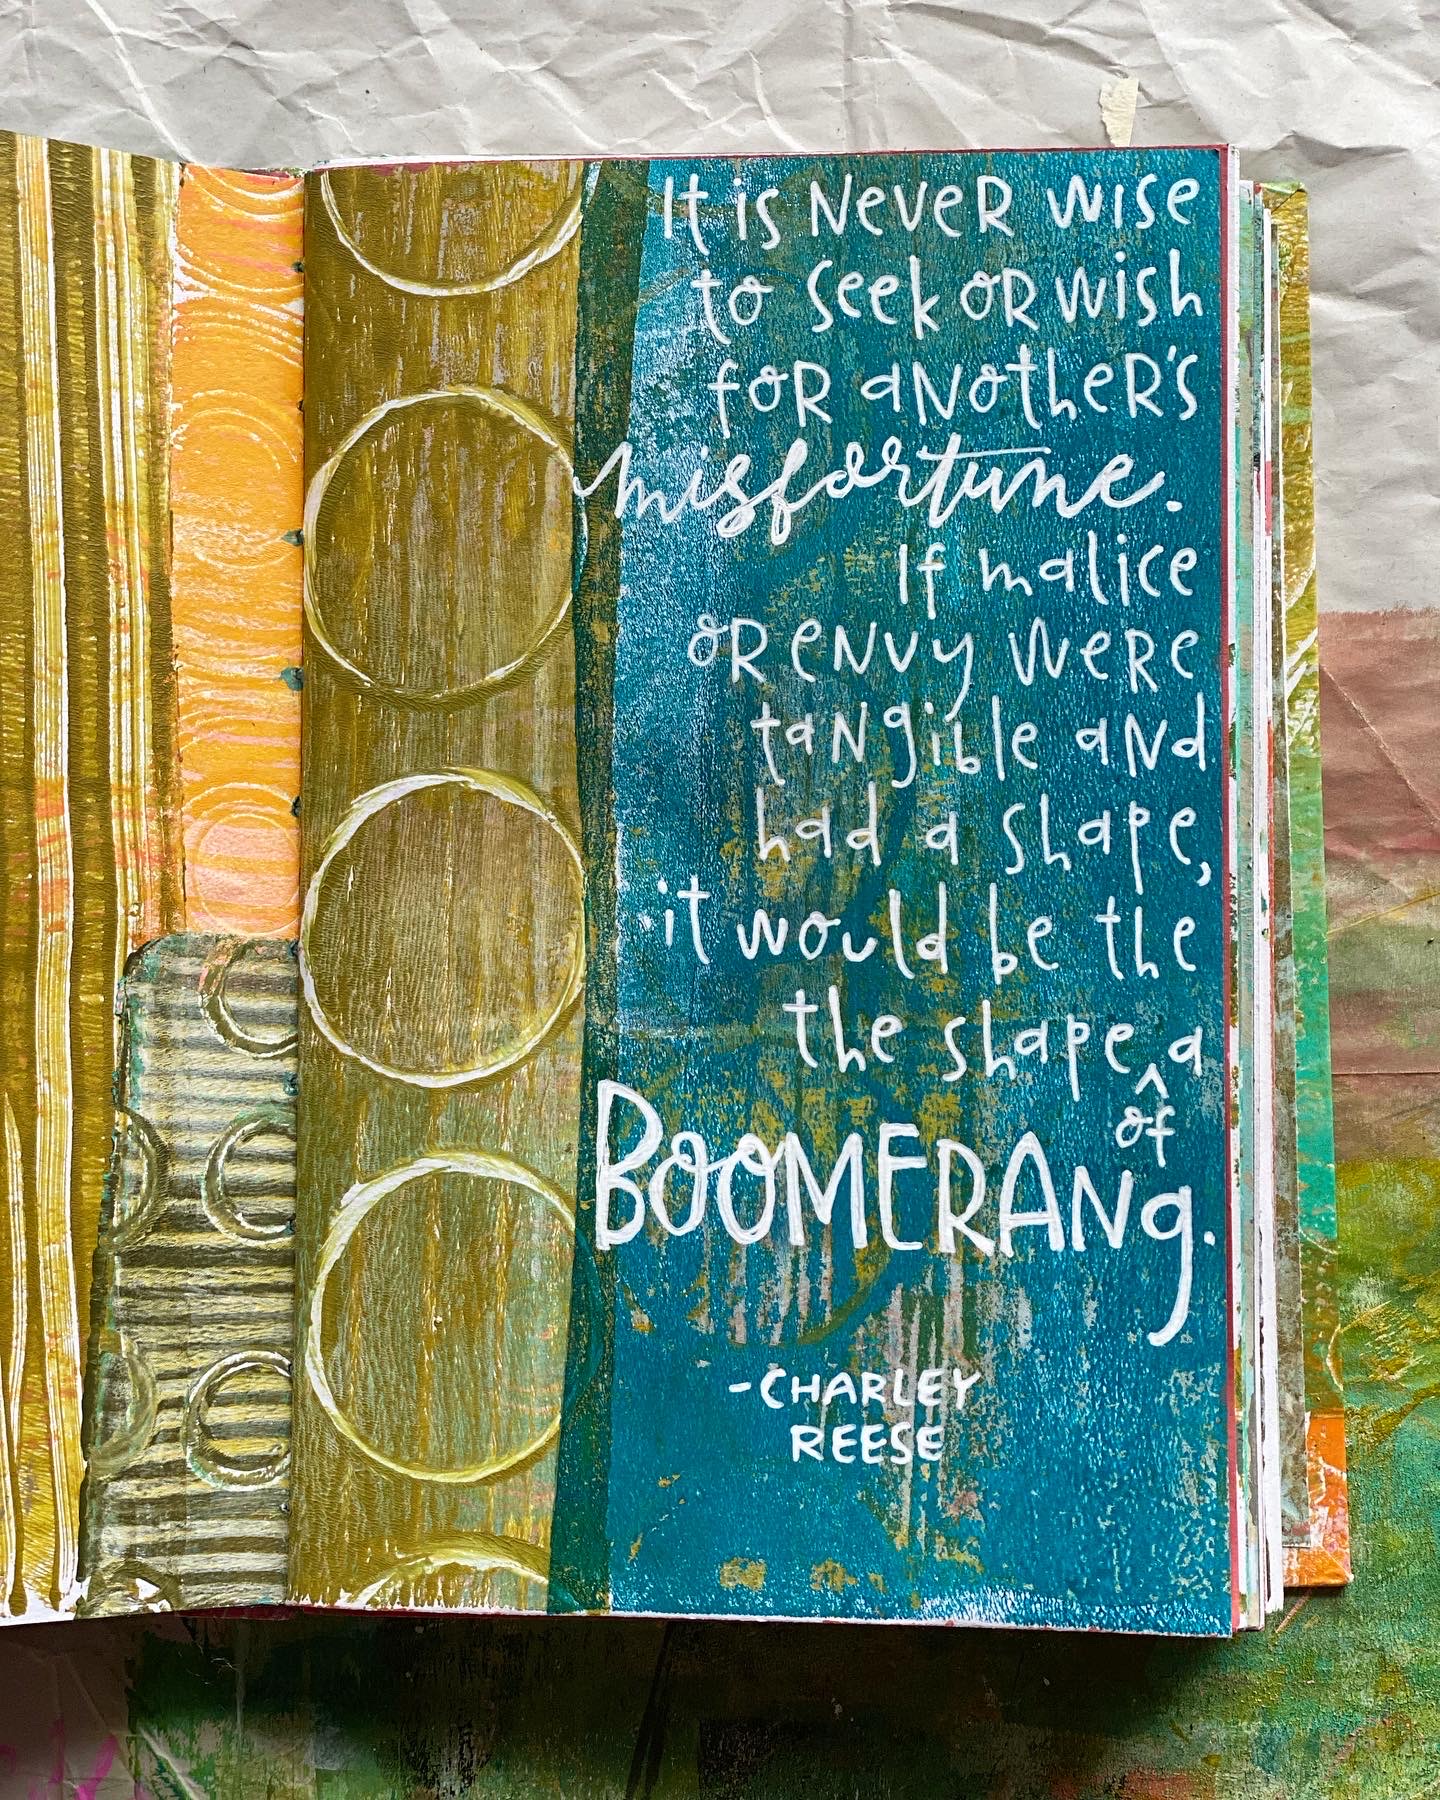 It is Never wise
to seek or wish
for another's
misfortune.
If malice
or envy were
tangible and
had a shape,
it would be the
the shape of a
BOOMERANg.
-CHARLEY
REESE